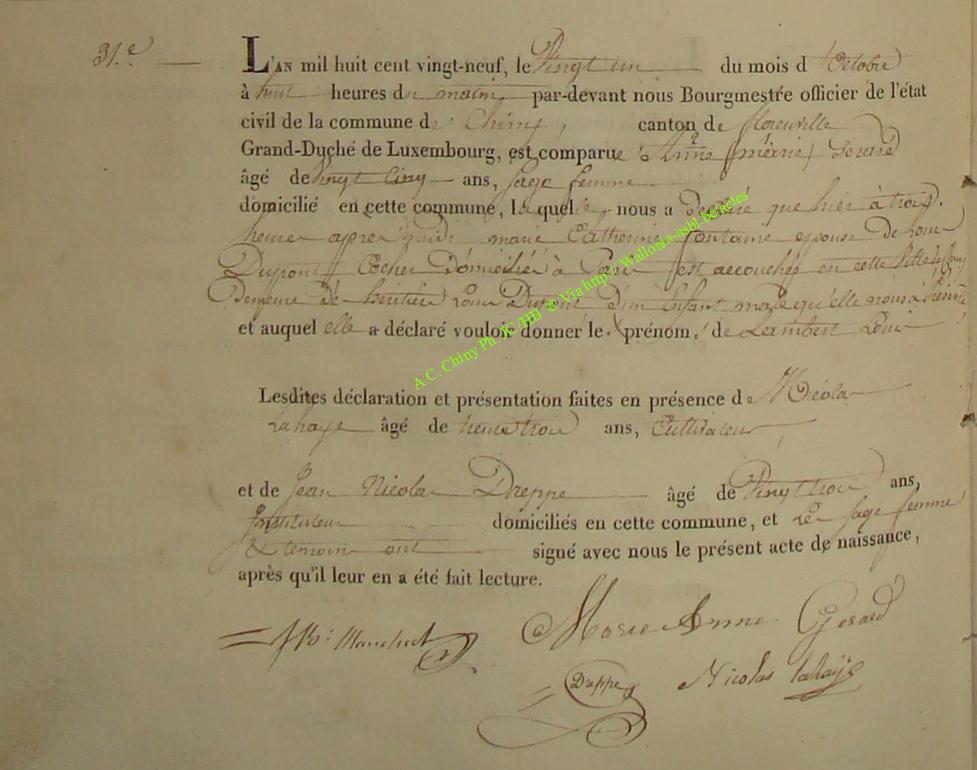 31.e
L'AN mil huit cent vingt-neuf, le Vingt un du mois d'octobre
à huit heures du matin, par-devant nous Bourgmestre officier de l'état
civil de la commune de Chiny, canton de florenville
Grand-Duché de Luxembourg, est comparue Anne (marie) Gerard
âgé de Vingt Cinq ans, sage femme
domicilié en cette commune, laquelle nous a declaré que hier à trois
heures apres midi marie Catherine fontaine epouse de Louis
Dupont Cocher Domicilié à Paris est accouchée en cette Ville
Demeure de héritier Louis Dupont D'un Enfant male qu'elle nous a présenté
et auquel elle a déclaré vouloir donner le prénom, de Lambert Louis
Lesdites déclaration et présentation faites en présence de Nicolas
Lahaye âgé de trente trois ans, Cultivateur,
et de Jean Nicolas Dreppe âgé de Vingt trois ans,
Instituteur domiciliés en cette commune, et La sage femme
& temoins ont signé avec nous le présent acte de naissance,
après qu'il leur en a été fait lecture.
Marie Anne Gerard
Dreppe Nicolas lahaye
A.C. Chiny Ph. JC/HB ® Via http://Wallonia-asbl.be/actes